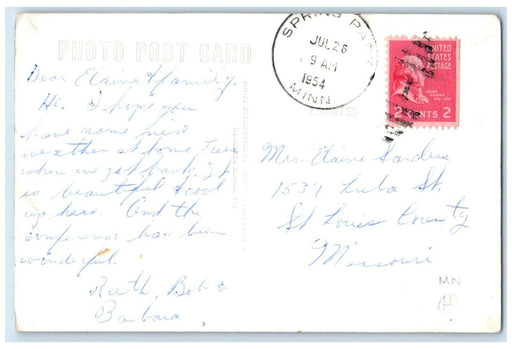 PHOTO POST CARD
SPRING PARK
JUL 26
9 AM
1954
MINN
UNITED
STATES
POSTAGE
JOHN
ADAMS
2 CENTS 2
Dear Elaine & family,
Hi. I hope you
have some nice
weather at home
when we get back. It
is beautiful & cool
up here. And the
conference has been
wonderful.
Ruth, Bob &
Barbara
Mrs. Elaine Sanders
1537 Lula St.
St Louis County
Missouri
MN